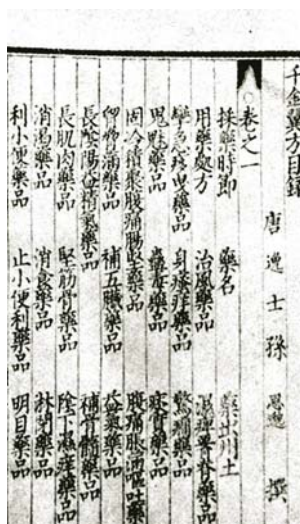 千金翼方目錄
唐 逸 士 孫 思邈 撰
卷之一
採藥時節 藥名 藥出州土
用藥處方 治風藥品 濕痺腰脊藥品
攣急曳藥品 身瘙痒藥品 驚癎藥品
鬼魅藥品 蠱毒藥品 痰實藥品
固冷積聚腹痛腸堅藥品 腹痛脹滿嘔吐藥
胸脅滿藥品 補五臟藥品 益氣藥品
長陰陽益精氣藥品 補骨髓藥品
長肌肉藥品 堅筋骨藥品 陰下濕痒藥品
消渴藥品 消食藥品 淋閉藥品
利小便藥品 止小便利藥品 明目藥品